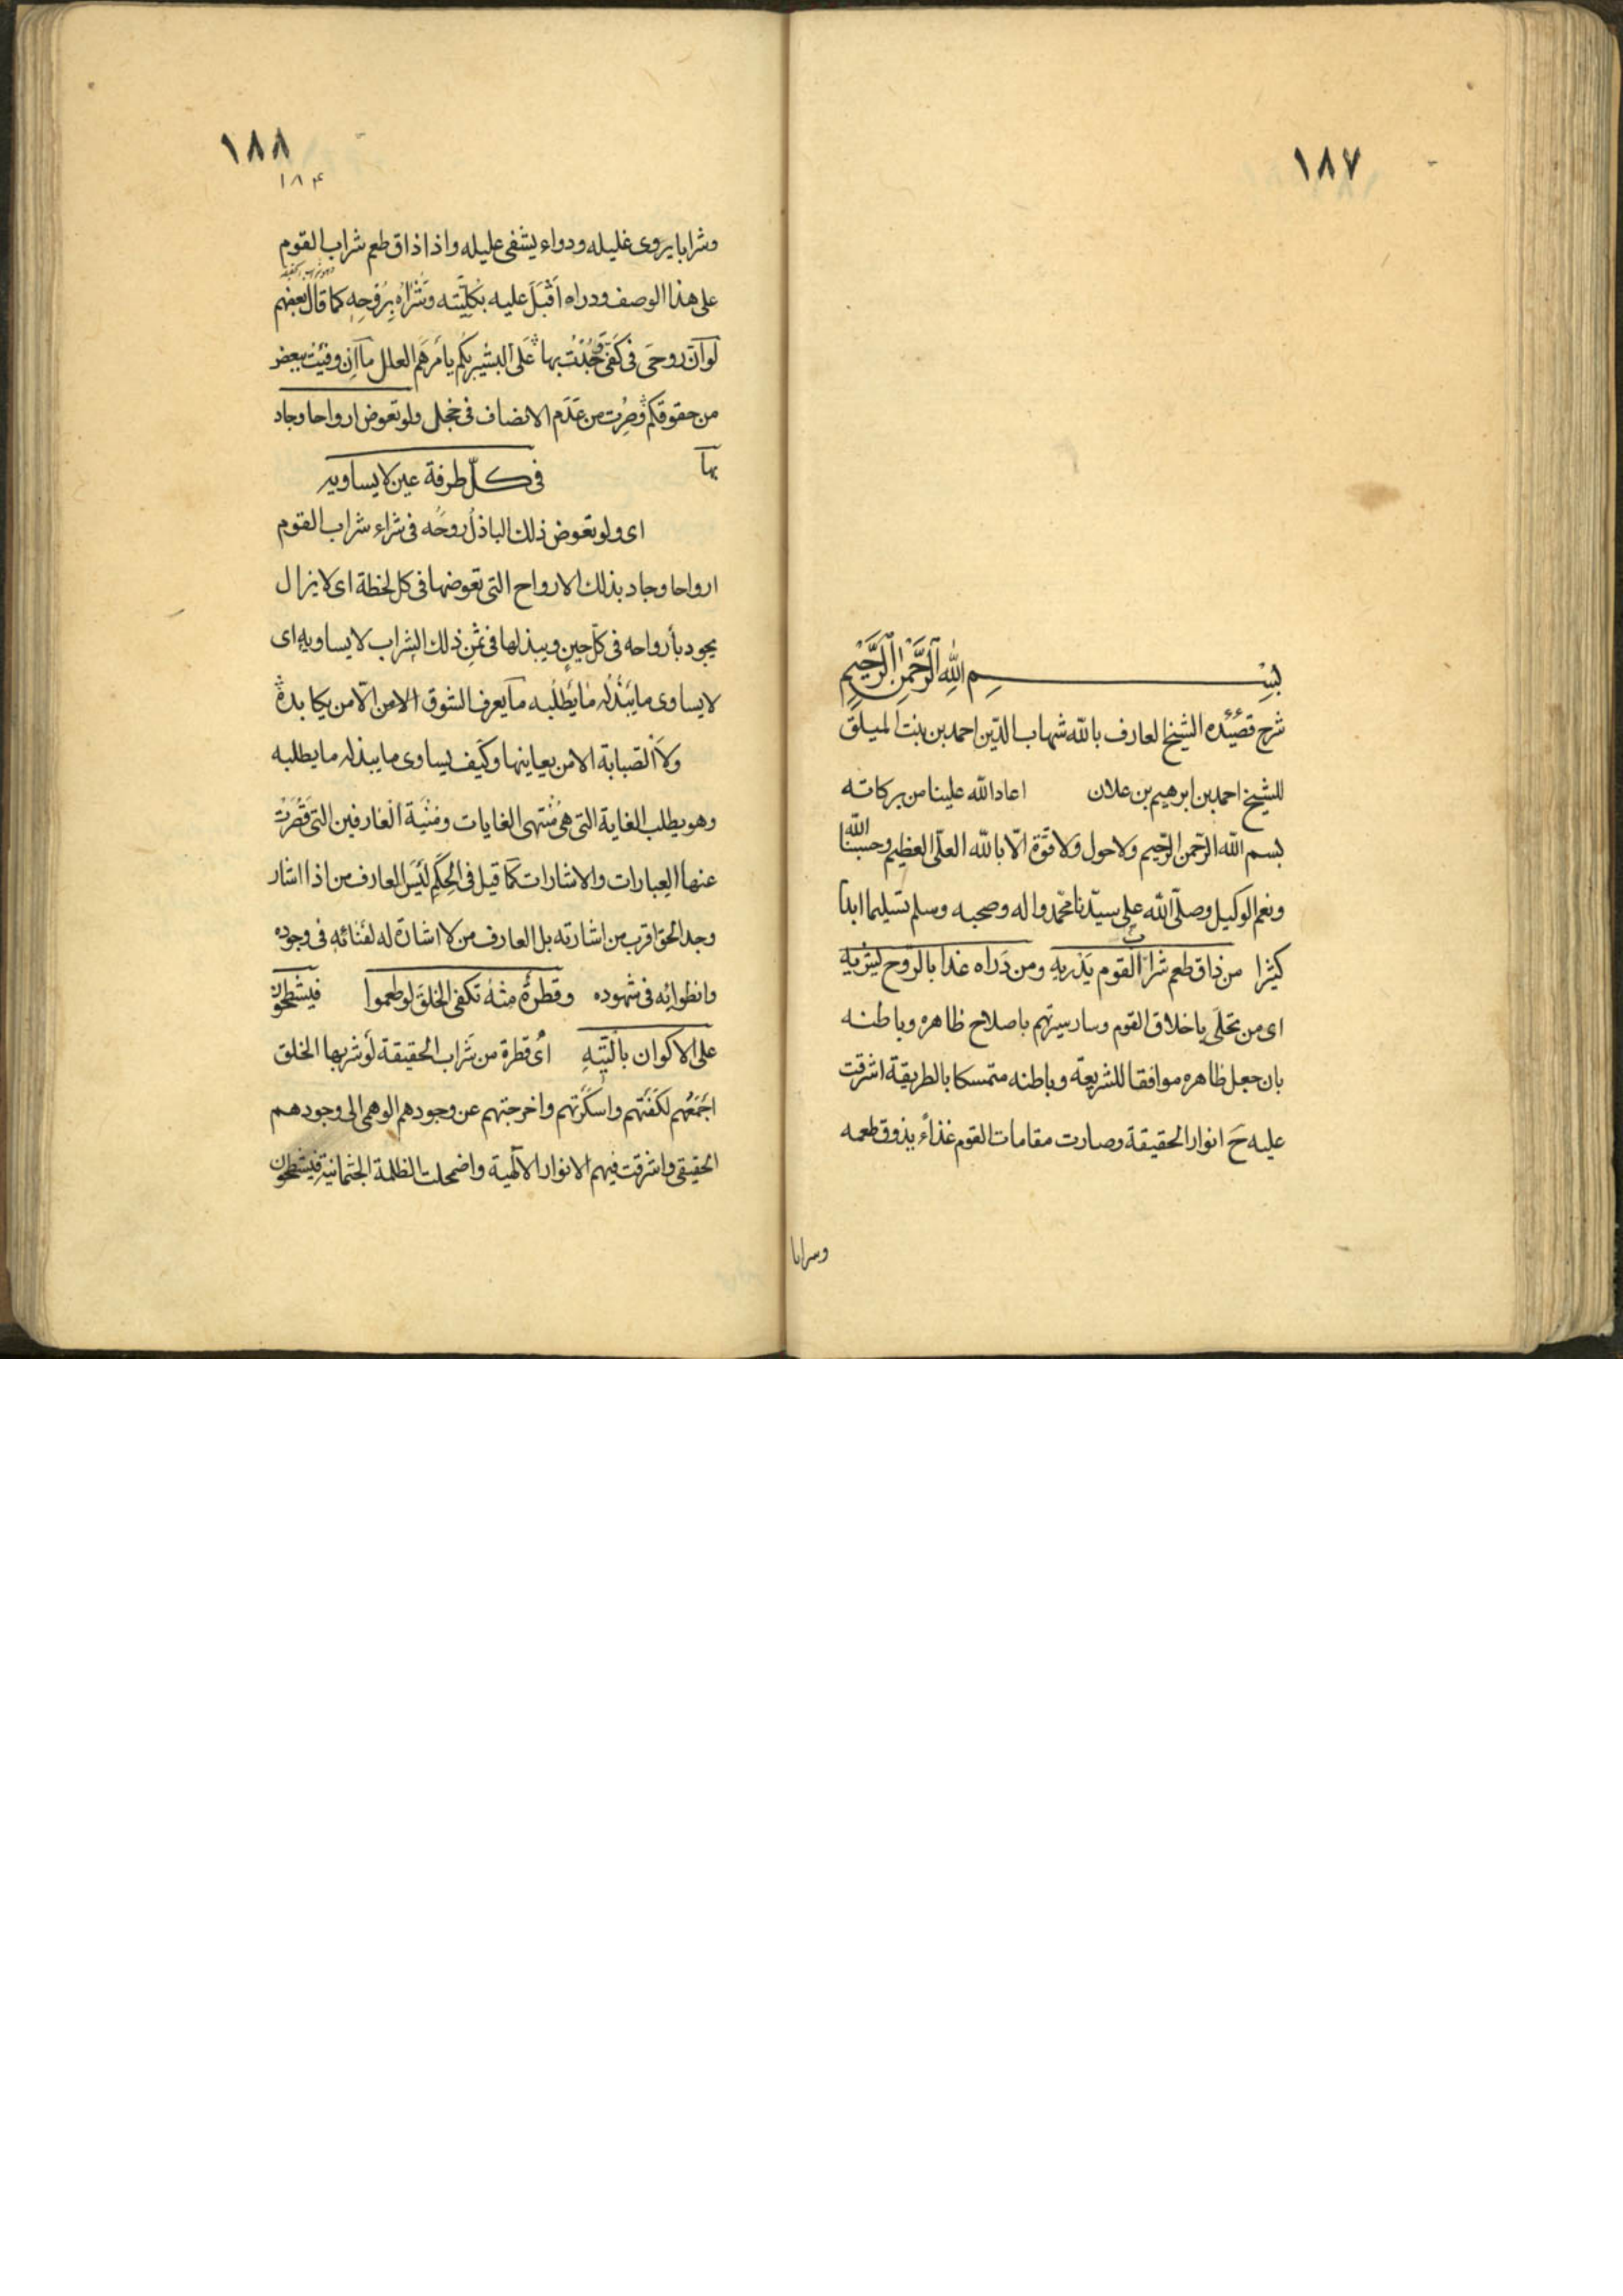 ١٨٧
بسم الله الرحمن الرحيم
شرح قصيده الشيخ العارف بالله شهاب الدين احمد بن بنت الميلق
للشيخ احمد بن ابرهيم بن علان اعاد الله علينا من بركاته
بسم الله الرحمن الرحيم ولا حول ولا قوّة الّا بالله العلى العظيم وحسبنا الله
ونعم الوكيل وصلّى الله على سيّدنا محمّد واله وصحبه وسلم تسليما ابدا
كثيرا من ذاق طعم شراب القوم يدريه ومن دراه غدا بالروح يشريه
اى من تحلى باخلاق القوم وسار سيرتهم باصلاح ظاهره وباطنه
بان جعل ظاهره موافقا للشريعة وباطنه متمسكا بالطريقة اشرقت
عليه ح انوار الحقيقة وصارت مقامات القوم غذاء يذوق طعمه
وسرابا
١٨٨
١٨۴
وشرابا يروى غليله ودواء يشفى عليله واذا ذاق طعم شراب القوم
على هذا الوصف ودراه اَقْبَلَ عليه بكليّته وشراه بروحه كما قال بعضهم
لو انّ روحى فى كفى وجُدْتُ بها على البشير بكم يا مرهم العلل ما ان وفيت ببعض
من حقوقكم وصرت من عدم الانصاف فى خجل ولو تعوض ارواحا وجاد
بها فى كلّ طرفة عين لا يساويه
اى ولو تعوض ذلك الباذل روحه فى شراء شراب القوم
ارواحا وجاد بذلك الارواح التى تعوضها فى كل لحظة اى لا يزال
يجود بأرواحه فى كلّ حين ويبذلها فى ثمن ذلك الشراب لا يساويه اى
لا يساوى ما يبذله ما يطلبه ما يعرف الشوق الامن الّا من يكابده
ولا الصبابة الا من يعاينها وكيف يساوى ما يبذله ما يطلبه
وهو يطلب الغاية التى هى منتهى الغايات ومنية العارفين التى قصرت
عنها العبارات والاشارات كما قيل فى الحكم ليس العارف من اذا اشار
وجد الحق اقرب من اشارته بل العارف من لا اشارة له لفنائه فى وجوده
وانطوائه فى شهوده وقطرة منه تكفى الخلق لو طعموا فيشطحون
على الاكوان بالتيه اى قطرة من شراب الحقيقة لو شربها الخلق
اجمعهم لكفتهم واسكرتهم واخرجتهم عن وجودهم الوهمى الى وجودهم
الحقيقى واشرقت فيهم الانوار الالهية واضمحلت الظلمة الجثمانية فيشطحون